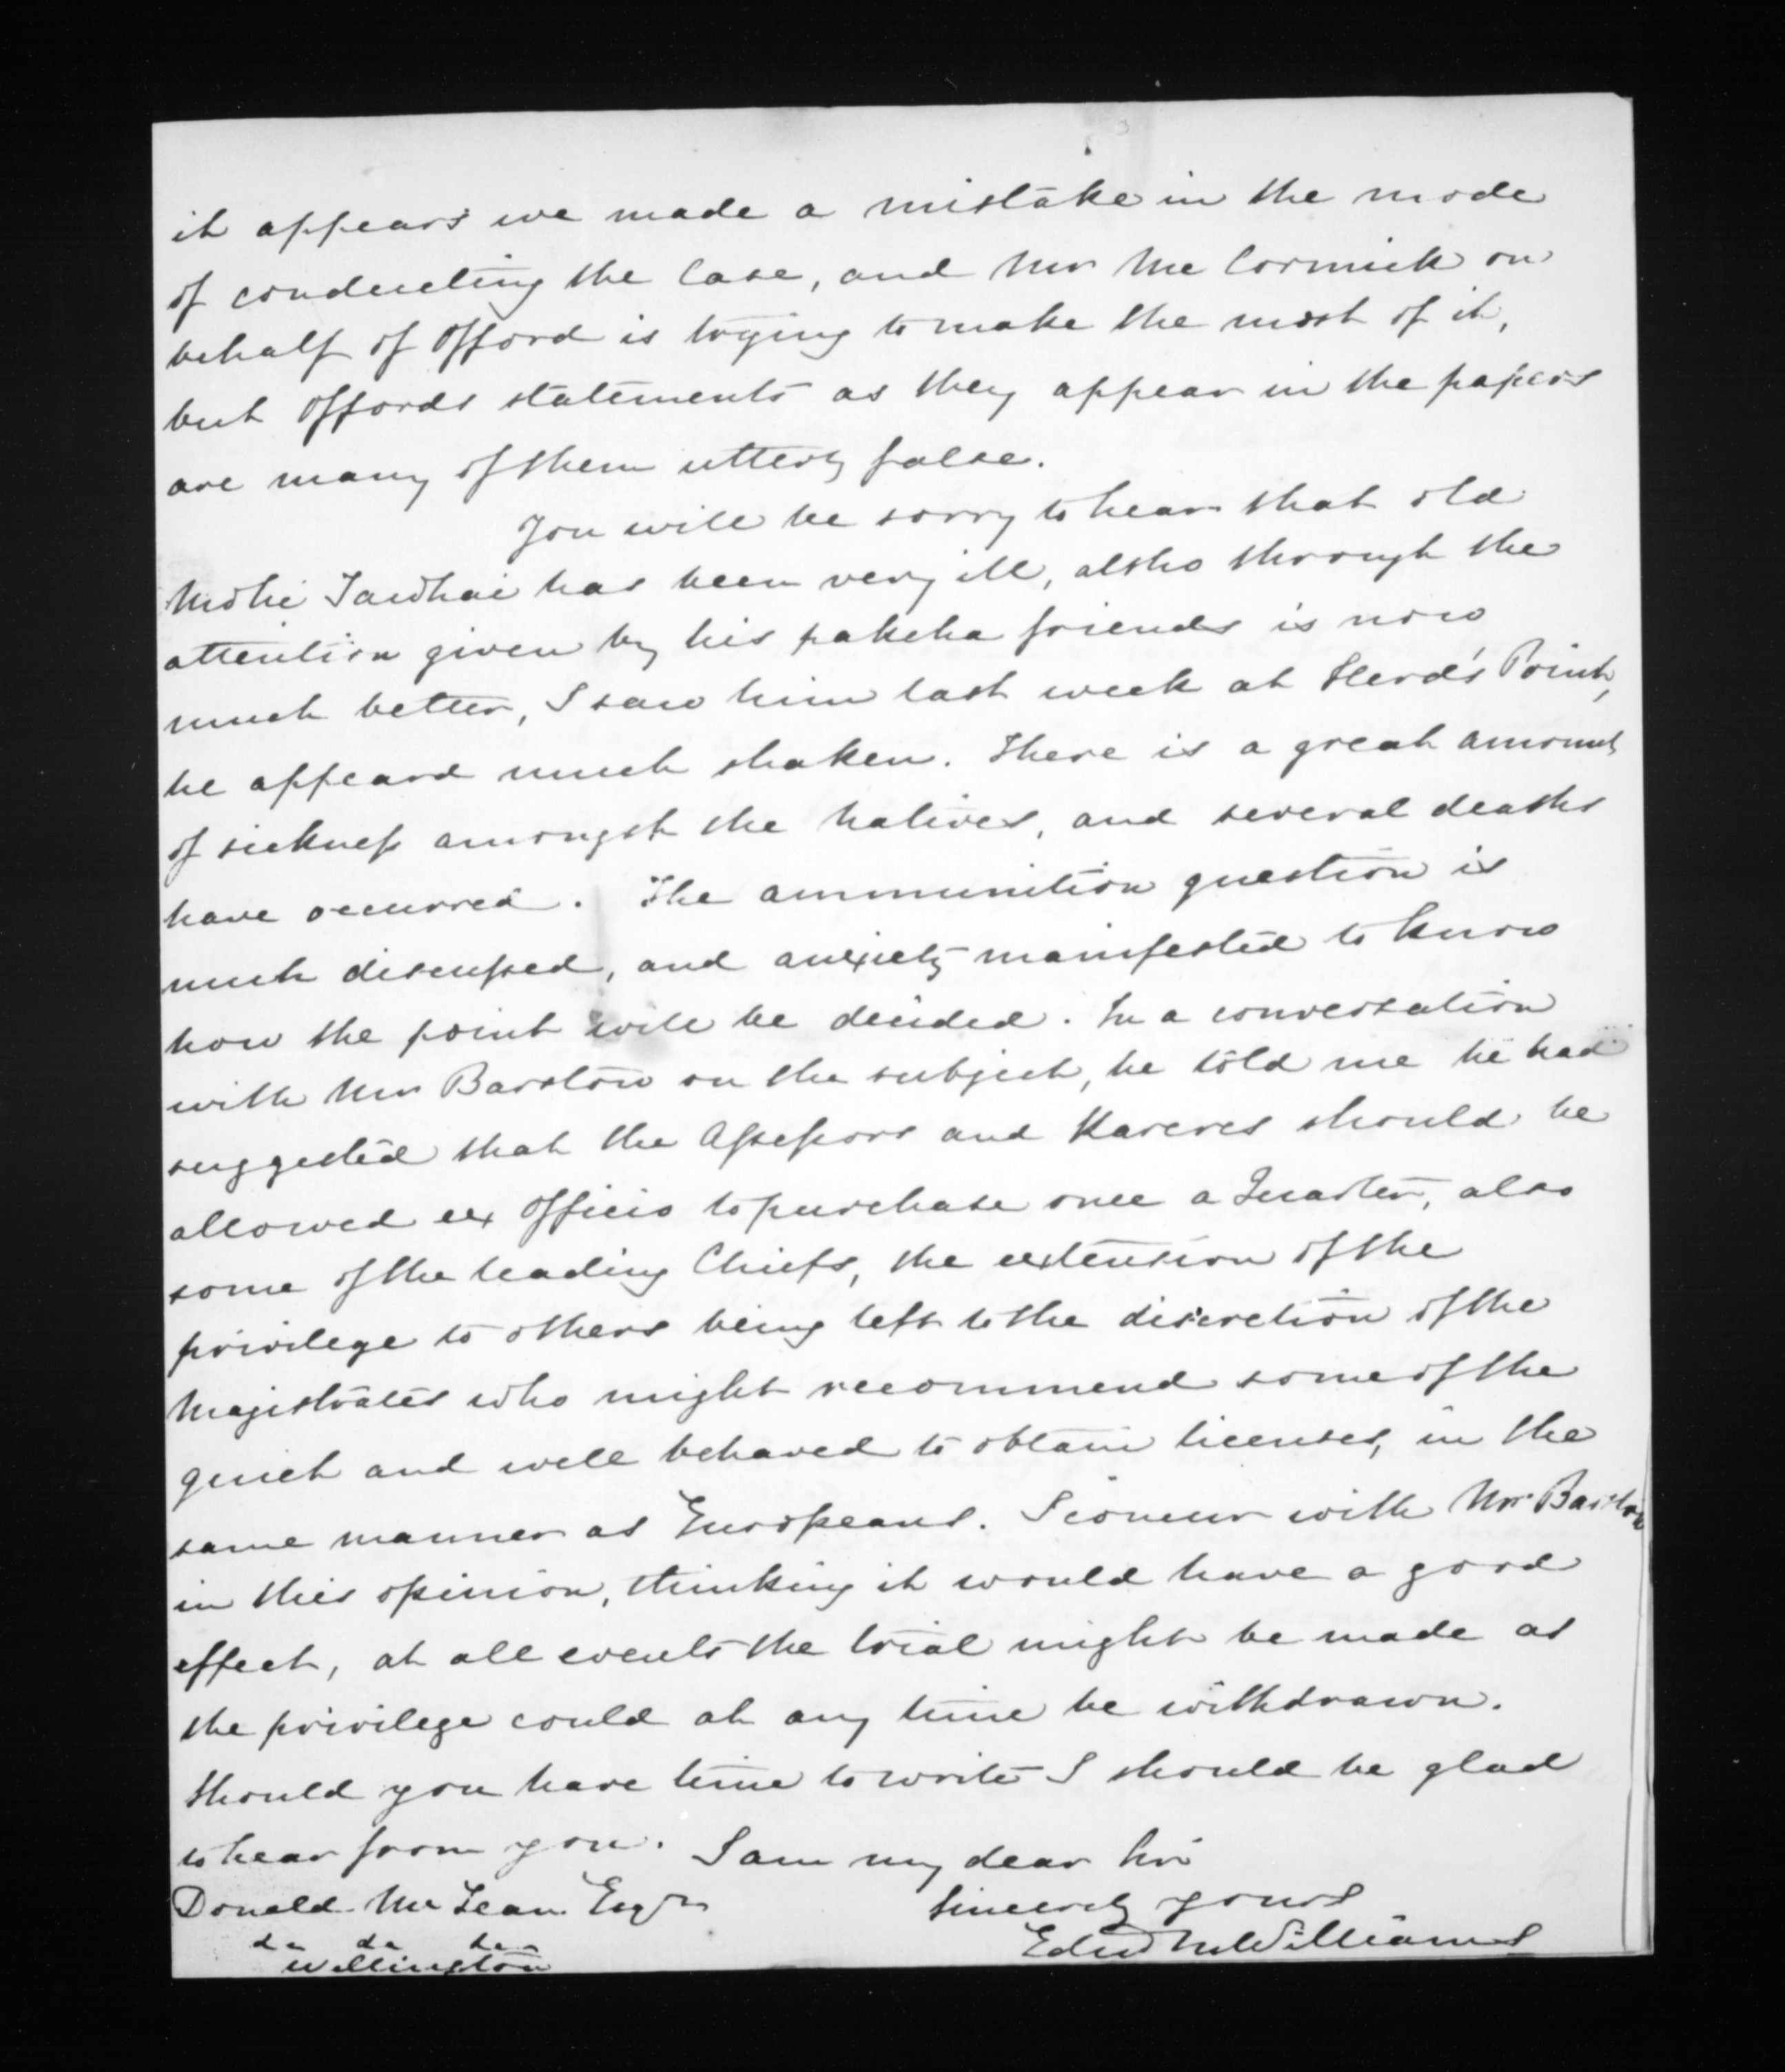 it appears we made a mistake in the mode
of conducting the Case, and Mr McCormick on
behalf of Offord is trying to make the most of it,
but Offords statements as they appear in the papers
are many of them utterly false.
You will be sorry to hear that old
Mohi Tawhai has been very ill, altho through the
attention given by his pakeha friends is now
much better, I saw him last week at Herd's Point,
he appeard much shaken. There is a great amount
of sickness amongst the Natives, and several deaths
have occurred. The ammunition question is
much discussed, and anxiety manifested to know
how the point will be decided. In a conversation
with Mr Barstow on the subject, he told me he had
suggested that the Assessors and Kareres should be
allowed ex Officio to purchase once a Quarter, also
some of the leading Chiefs, the extension of the
privilege to others being left to the discretion of the
Magistrates who might recommend some of the
quiet and well behaved to obtain licenses, in the
same manner as Europeans. I concur with Mr Barstow
in this opinion, thinking it would have a good
effect, at all events the trial might be made as
the privilege could at any time be withdrawn.
Should you have time to write I should be glad
to hear from you. I am my dear Sir
Donald McLean Esqre Sincerely yours
Edwd M Williams
Wellington